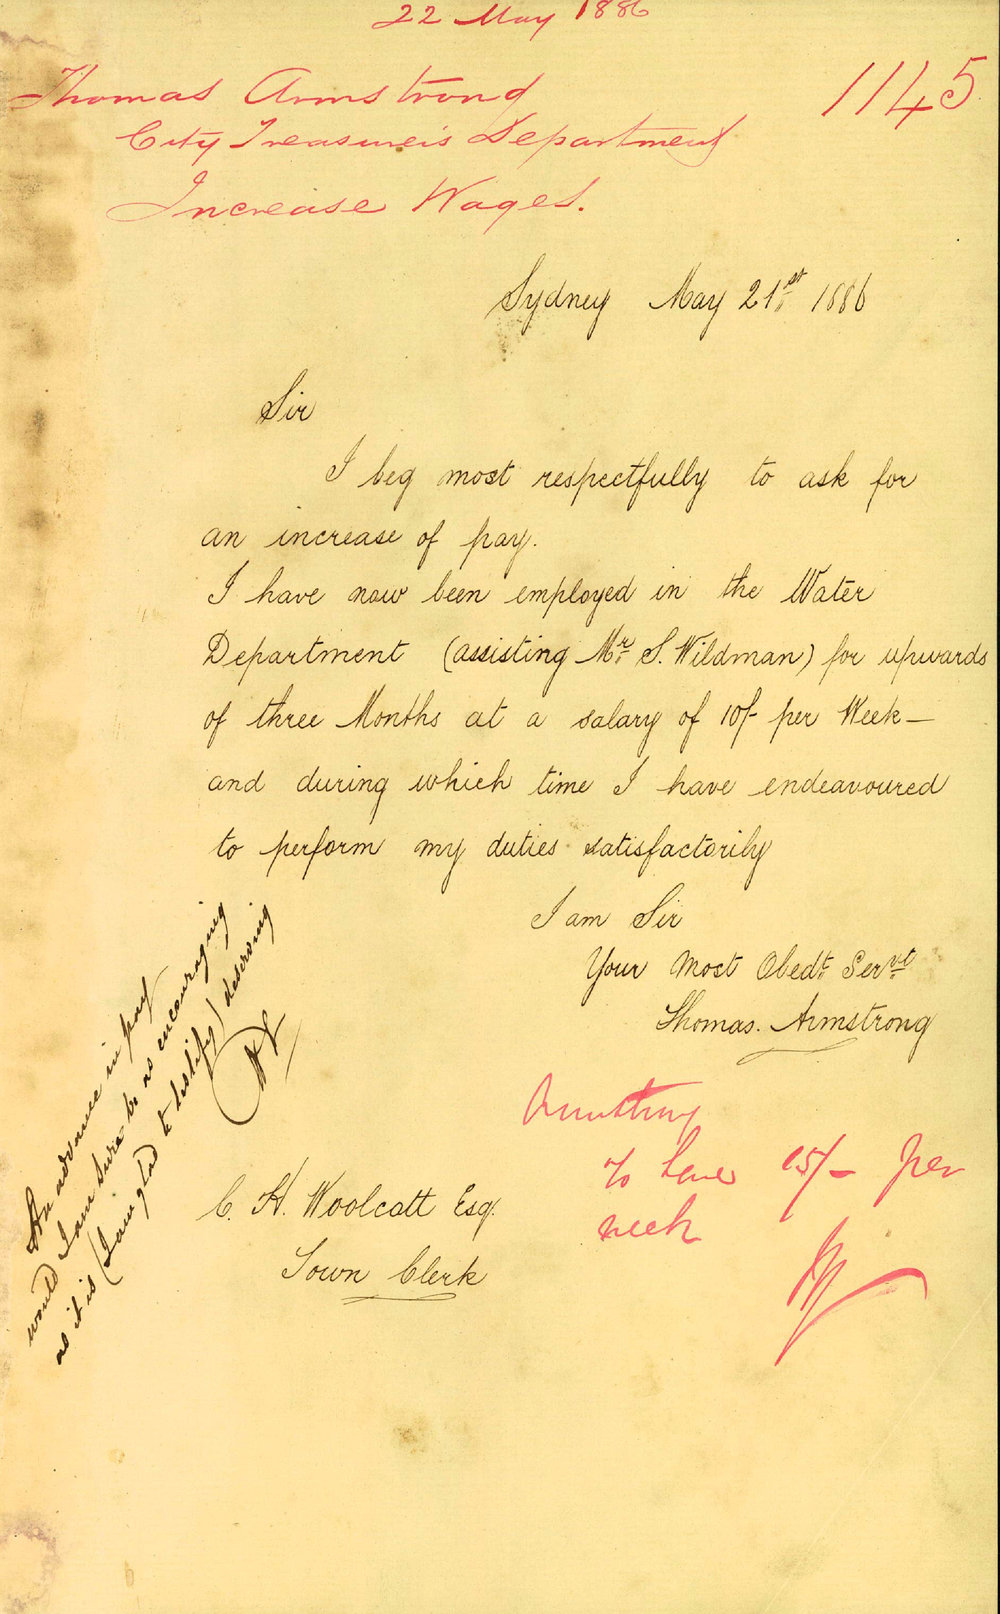 22 May 1886
Thomas Armstrong
1145
City Treasurer's Department
Increase Wages.
Sydney May 21st 1886
Sir
I beg most respectfully to ask for
an increase of pay.
I have now been employed in the Water
Department (assisting Mr S. Wildman) for upwards
of three Months at a salary of 10/- per Week —
and during which time I have endeavoured
to perform my duties satisfactorily
I am Sir
Your Most Obedt. Servt
Thomas. Armstrong
An advance in pay
would I am sure be as encouraging
as it is (I am glad to testify) deserving
Armstrong
to have 15/- per
week
C. H. Woolcott Esq.
Town Clerk